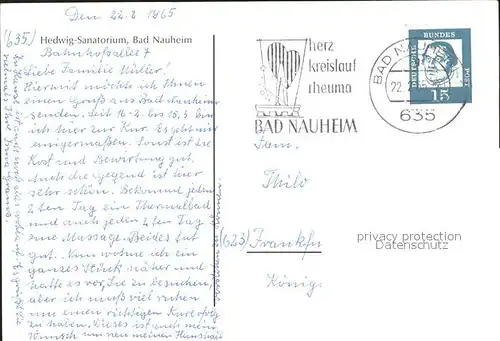 Den 22.2 1965
(635) Hedwig-Sanatorium, Bad Nauheim
Bahnhofsallee 7
Liebe Familie Müller!
Hiermit möchte ich Ihnen
einen Gruß aus Bad Nauheim
senden. Seit 16.2 bis 15.3 bin
ich hier zur Kur. Es geht mir
einigermaßen. Sonst ist die
Kost und Bewirtung gut.
Auch die Gegend ist hier
sehr schön. Bekomme jeden
2ten Tag ein Thermalbad
und auch jeden 2ten Tag
eine Massage. Beides tut
gut. Nun wohne ich ein
ganzes Stück näher und
hatte es vor, Sie zu besuchen,
aber ich muß viel ruhen
um einen richtigen Kurerfolg
zu haben. Dieses ist auch mein
Wunsch um neu meinen Haushalt
herz
kreislauf
rheuma
BAD NAUHEIM
BAD NAU
22.
635
DEUTSCHE
BUNDES
POST
15
Fam.
Thilo
(623) Frankfu
König
privacy protection
Datenschutz